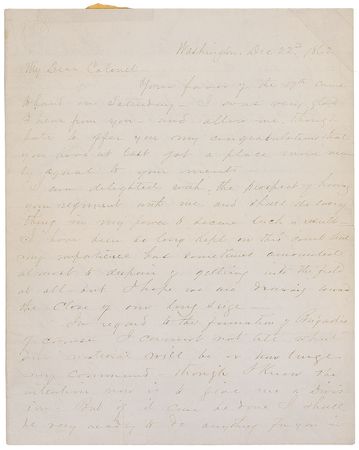 Washington, Dec 22d, 1862
My Dear Colonel
Your favor of the 19th came
to hand on Saturday - I was very glad
to hear from you - and allow me, though
late to offer you my congratulations that
you have at last got a place more near
ly equal to your merits
I am delighted with the prospect of having
your regiment with me and shall do every
thing in my power to secure such a result -
I have been so long kept on this court that
my impatience has sometimes amounted
almost to despair of getting into the field
at all but I hope we are drawing toward
the close of our long siege -
In regard to the formation of Brigades
of course I cannot tell what
my material will be or how large
my command - though I know the
intention now is to give me a Divis
ion - But if it can be done I shall
be very ready to do anything for you in